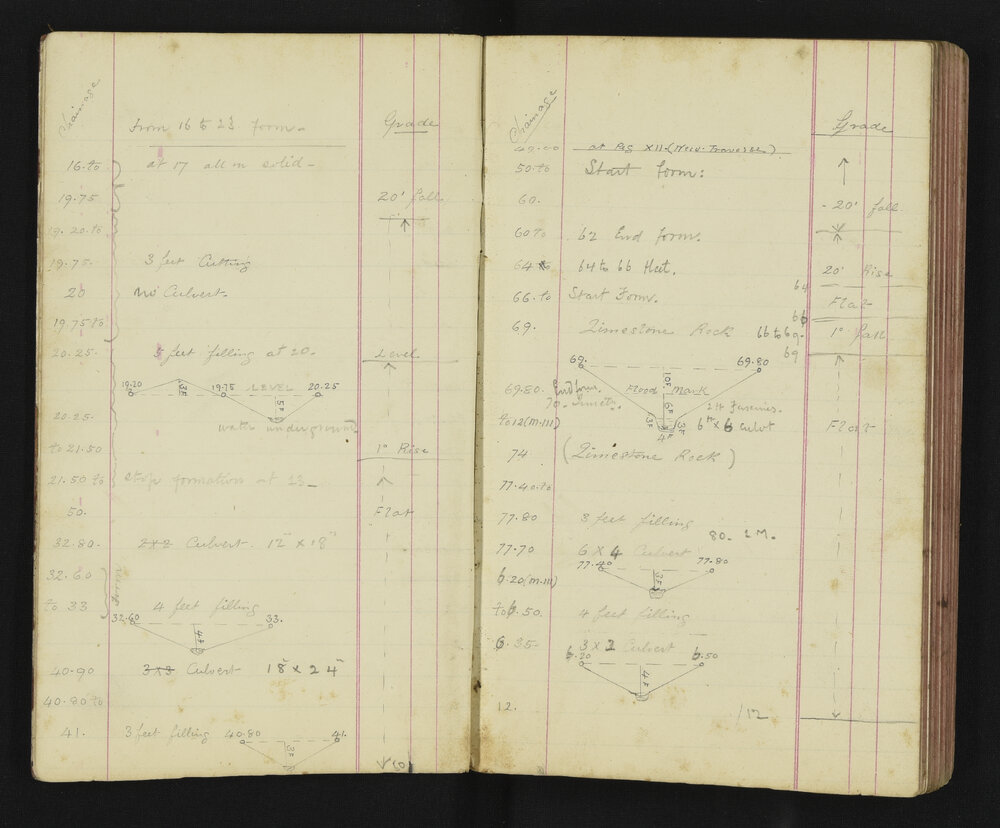 Chainage
from 16 to 23 form.
Grade
16. to
at 17 all in solid -
19.75
20' fall
19.20. to
19.75.
3 feet Cutting
20
no Culvert.
19.75 to
20.25.
5 feet filling at 20.
Level
19.20 3F 19.75 LEVEL 20.25
5F
20.25.
water underground
to 21.50
1° Rise
21.50 to
stop formation at 23_
50.
Flat
32.80.
2x2 Culvert. 12" x 18"
32.60
form
to 33
4 feet filling
32.60 33.
4F
40.90
3x3 Culvert 18" x 24"
40.80 to
41.
3 feet filling 40.80 41.
3F
Chainage
Grade
49.00
at Peg XII-(New-Traverse)
50. to
Start form:
60.
- 20' fall
60 to
62 End form.
64 to
64 to 66 Flat.
20' Rise
64
66. to
Start Form.
Flat
66
69.
Limestone Rock 66 to 69.
1° fall
69
69. 69.80
10F
69.80.
End form
Flood Mark
70.
6F
to 12 (m.III)
3F 4F 3F
6ft x 6 culvt
Flat
74
(Limestone Rock)
77.40. to
77.80
3 feet filling
80. 2M.
77.70
6 x 4 Culvert
77.40 77.80
3F
6.20 (m.III)
to 6.50.
4 feet filling
6.35-
3 x 2 Culvert
6.20 6.50
4F
12.
/12